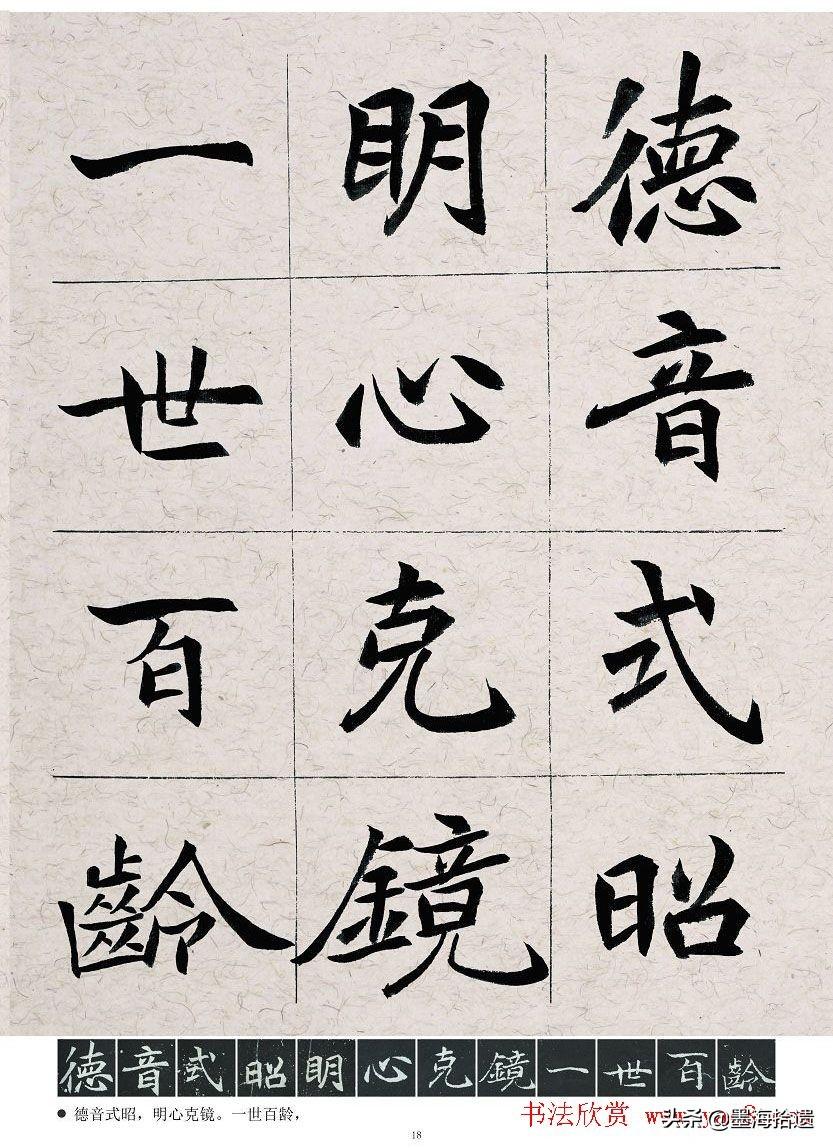 德音式昭
明心克鏡
一世百齡
德音式昭明心克鏡一世百齡
● 德音式昭，明心克镜。一世百龄，
书法欣赏
头条@墨海拾遗
18